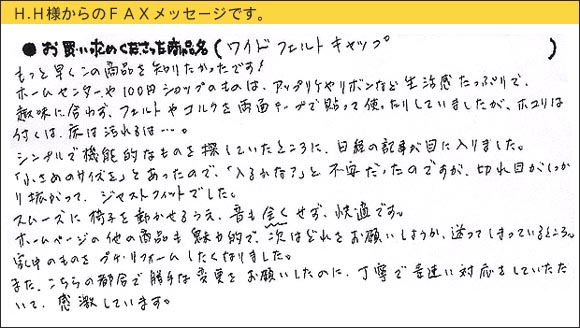 H.H様からのFAXメッセージです。
●お買い求めくださった商品名(ワイドフェルトキャップ)
もっと早くこの商品を知りたかったです!
ホームセンターや100円ショップのものは、アップリケやリボンなど生活感たっぷりで、
趣味に合わず、フェルトやコルクを両面テープで貼って使ったりしていましたが、ホコリは
付くは、床は汚れるは…。
シンプルで機能的なものを探していたところに、日経の記事が目に入りました。
「小さめのサイズを」とあったので、「入るかな?」と不安だったのですが、切れ目がしっか
り拡がって、ジャストフィットでした。
スムーズに椅子を動かせるうえ、音も全くせず、快適です。
ホームページの他の商品も魅力的で、次はどれをお願いしようか、迷ってしまっているところ。
家中のものをプチ・リフォームしたくなりました。
また、こちらの都合で勝手な変更をお願いしたのに、丁寧で迅速に対応をしていただ
いて、感激しています。